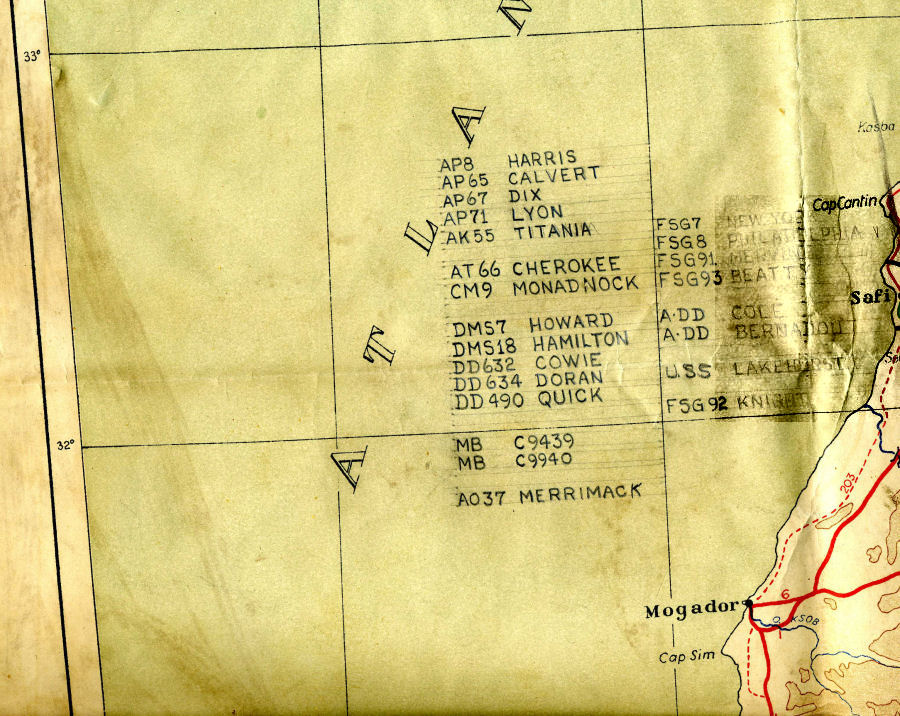 33°
N
A
L
T
A
Kasba
Cap Cantin
AP8 HARRIS
AP65 CALVERT
AP67 DIX
AP71 LYON
AK55 TITANIA
AT66 CHEROKEE
CM9 MONADNOCK
DMS7 HOWARD
DMS18 HAMILTON
DD632 COWIE
DD634 DORAN
DD490 QUICK
MB C9439
MB C9940
AO37 MERRIMACK
FSG7 NEW YO
FSG8 PHILADELPHIA
FSG91
FSG93 BEATTY
A·DD COLE
A·DD BERNADOU
USS LAKEHURST
FSG92 KNIGHT
Safi
32°
203
Mogador
6
Cap Sim